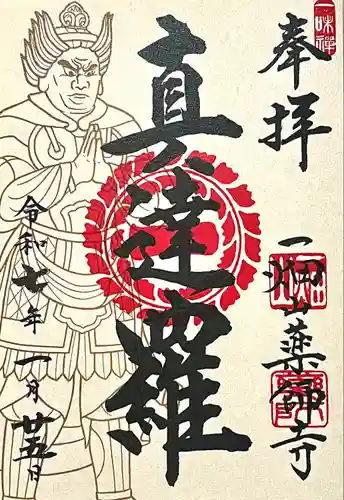 一味禅
奉拝
一畑山薬師寺
真達羅
令和七年一月廿五日